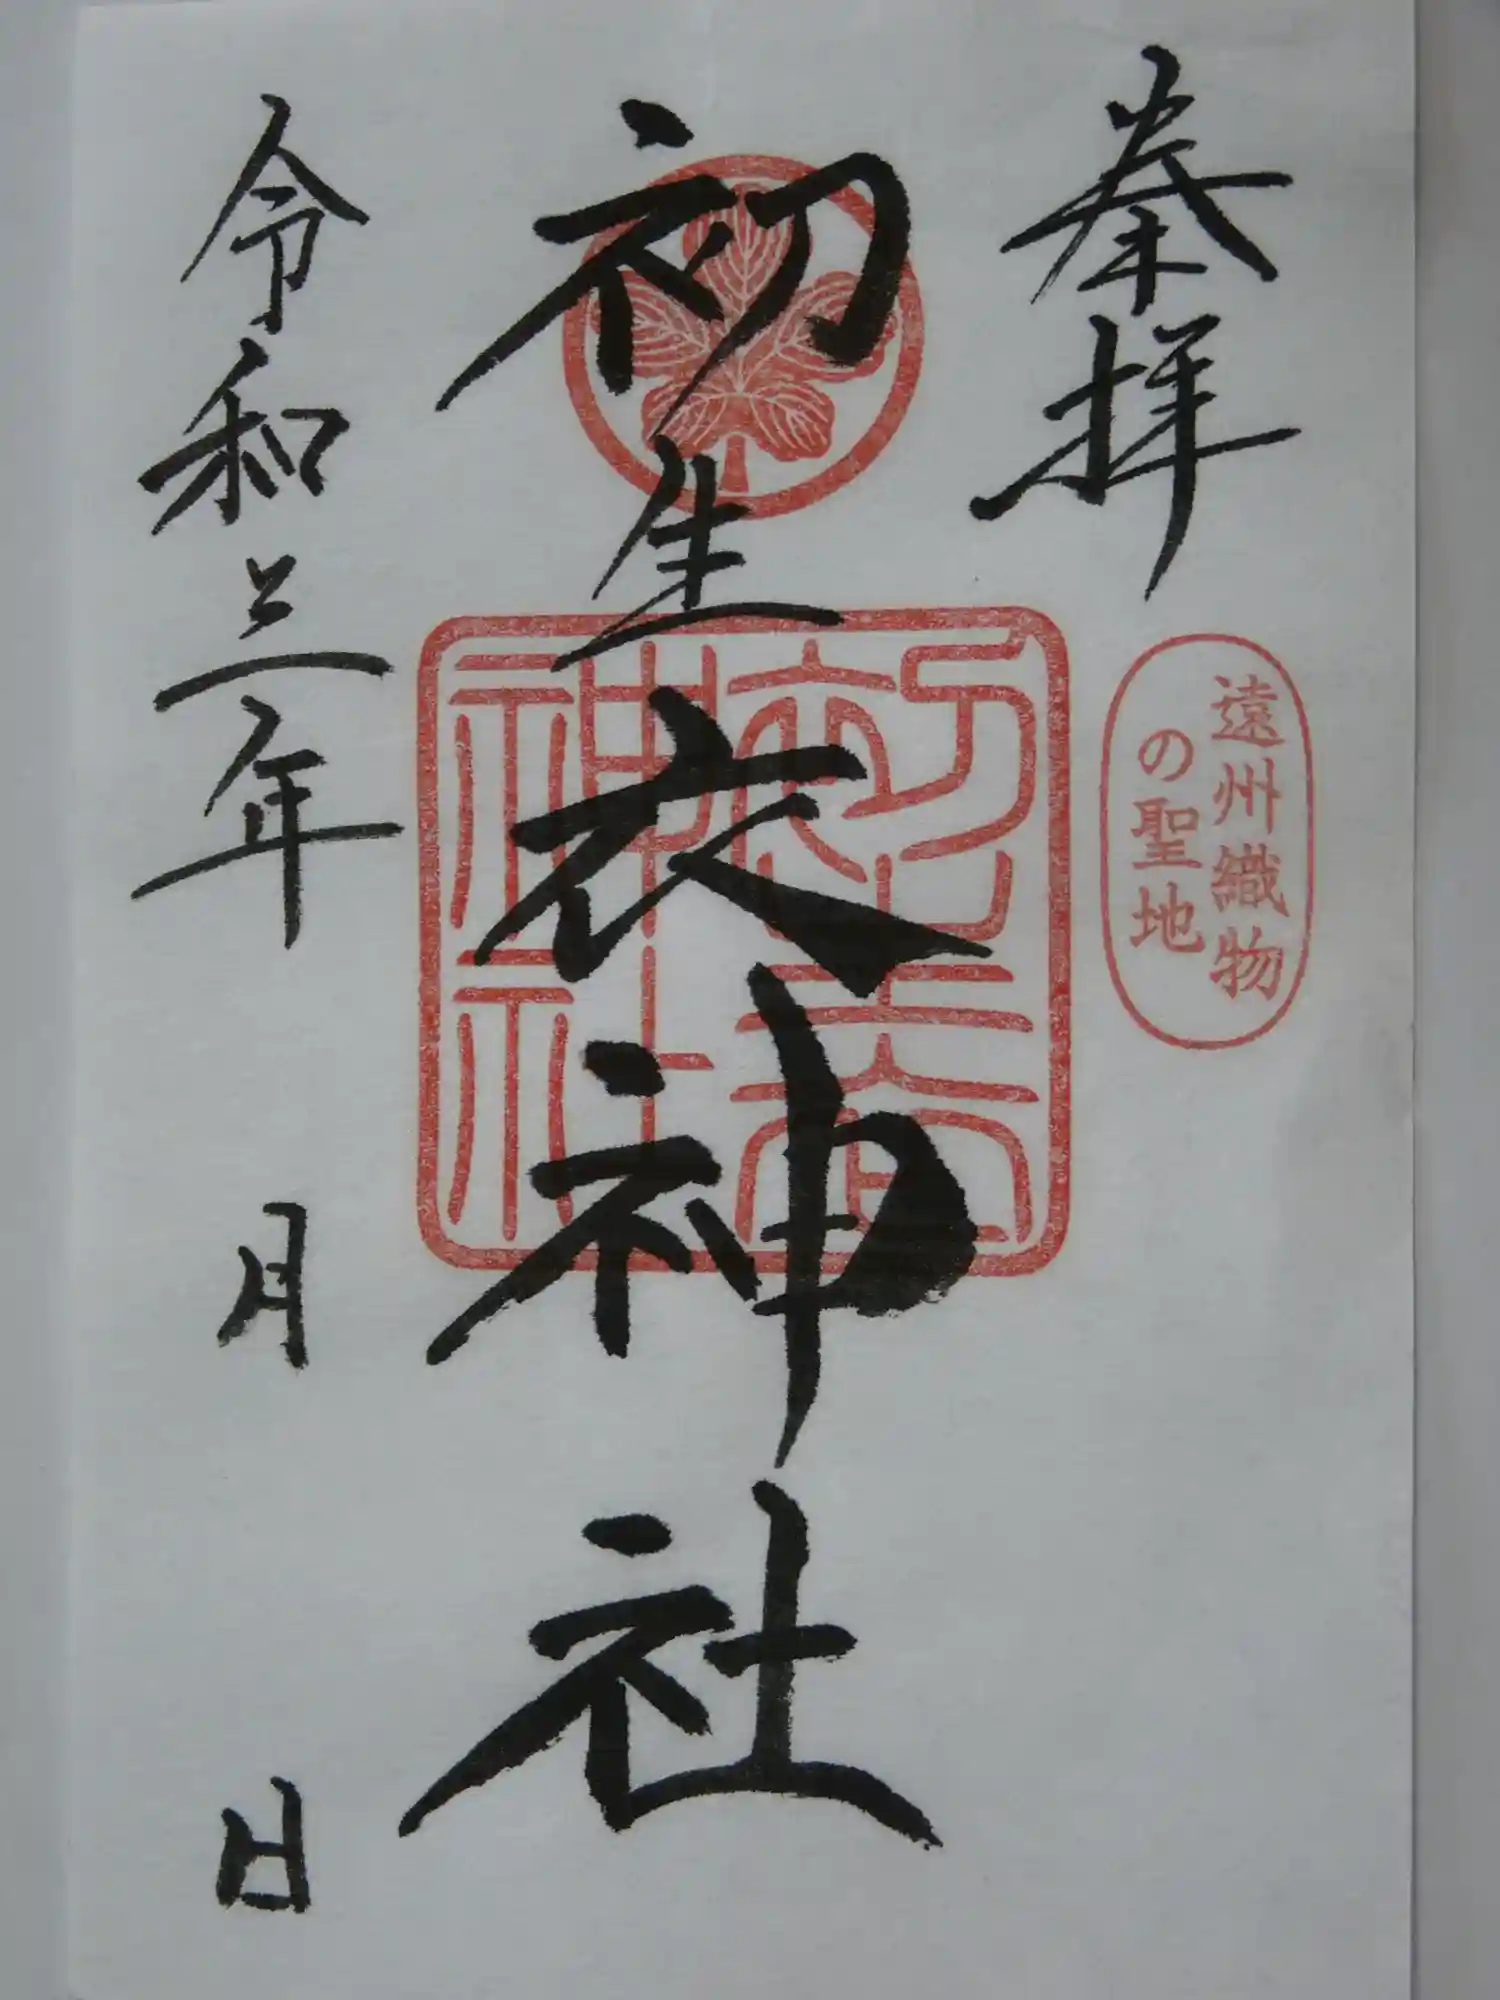 奉拝
遠州織物
の聖地
初生衣神社
初生衣
神社
令和三年
月
日